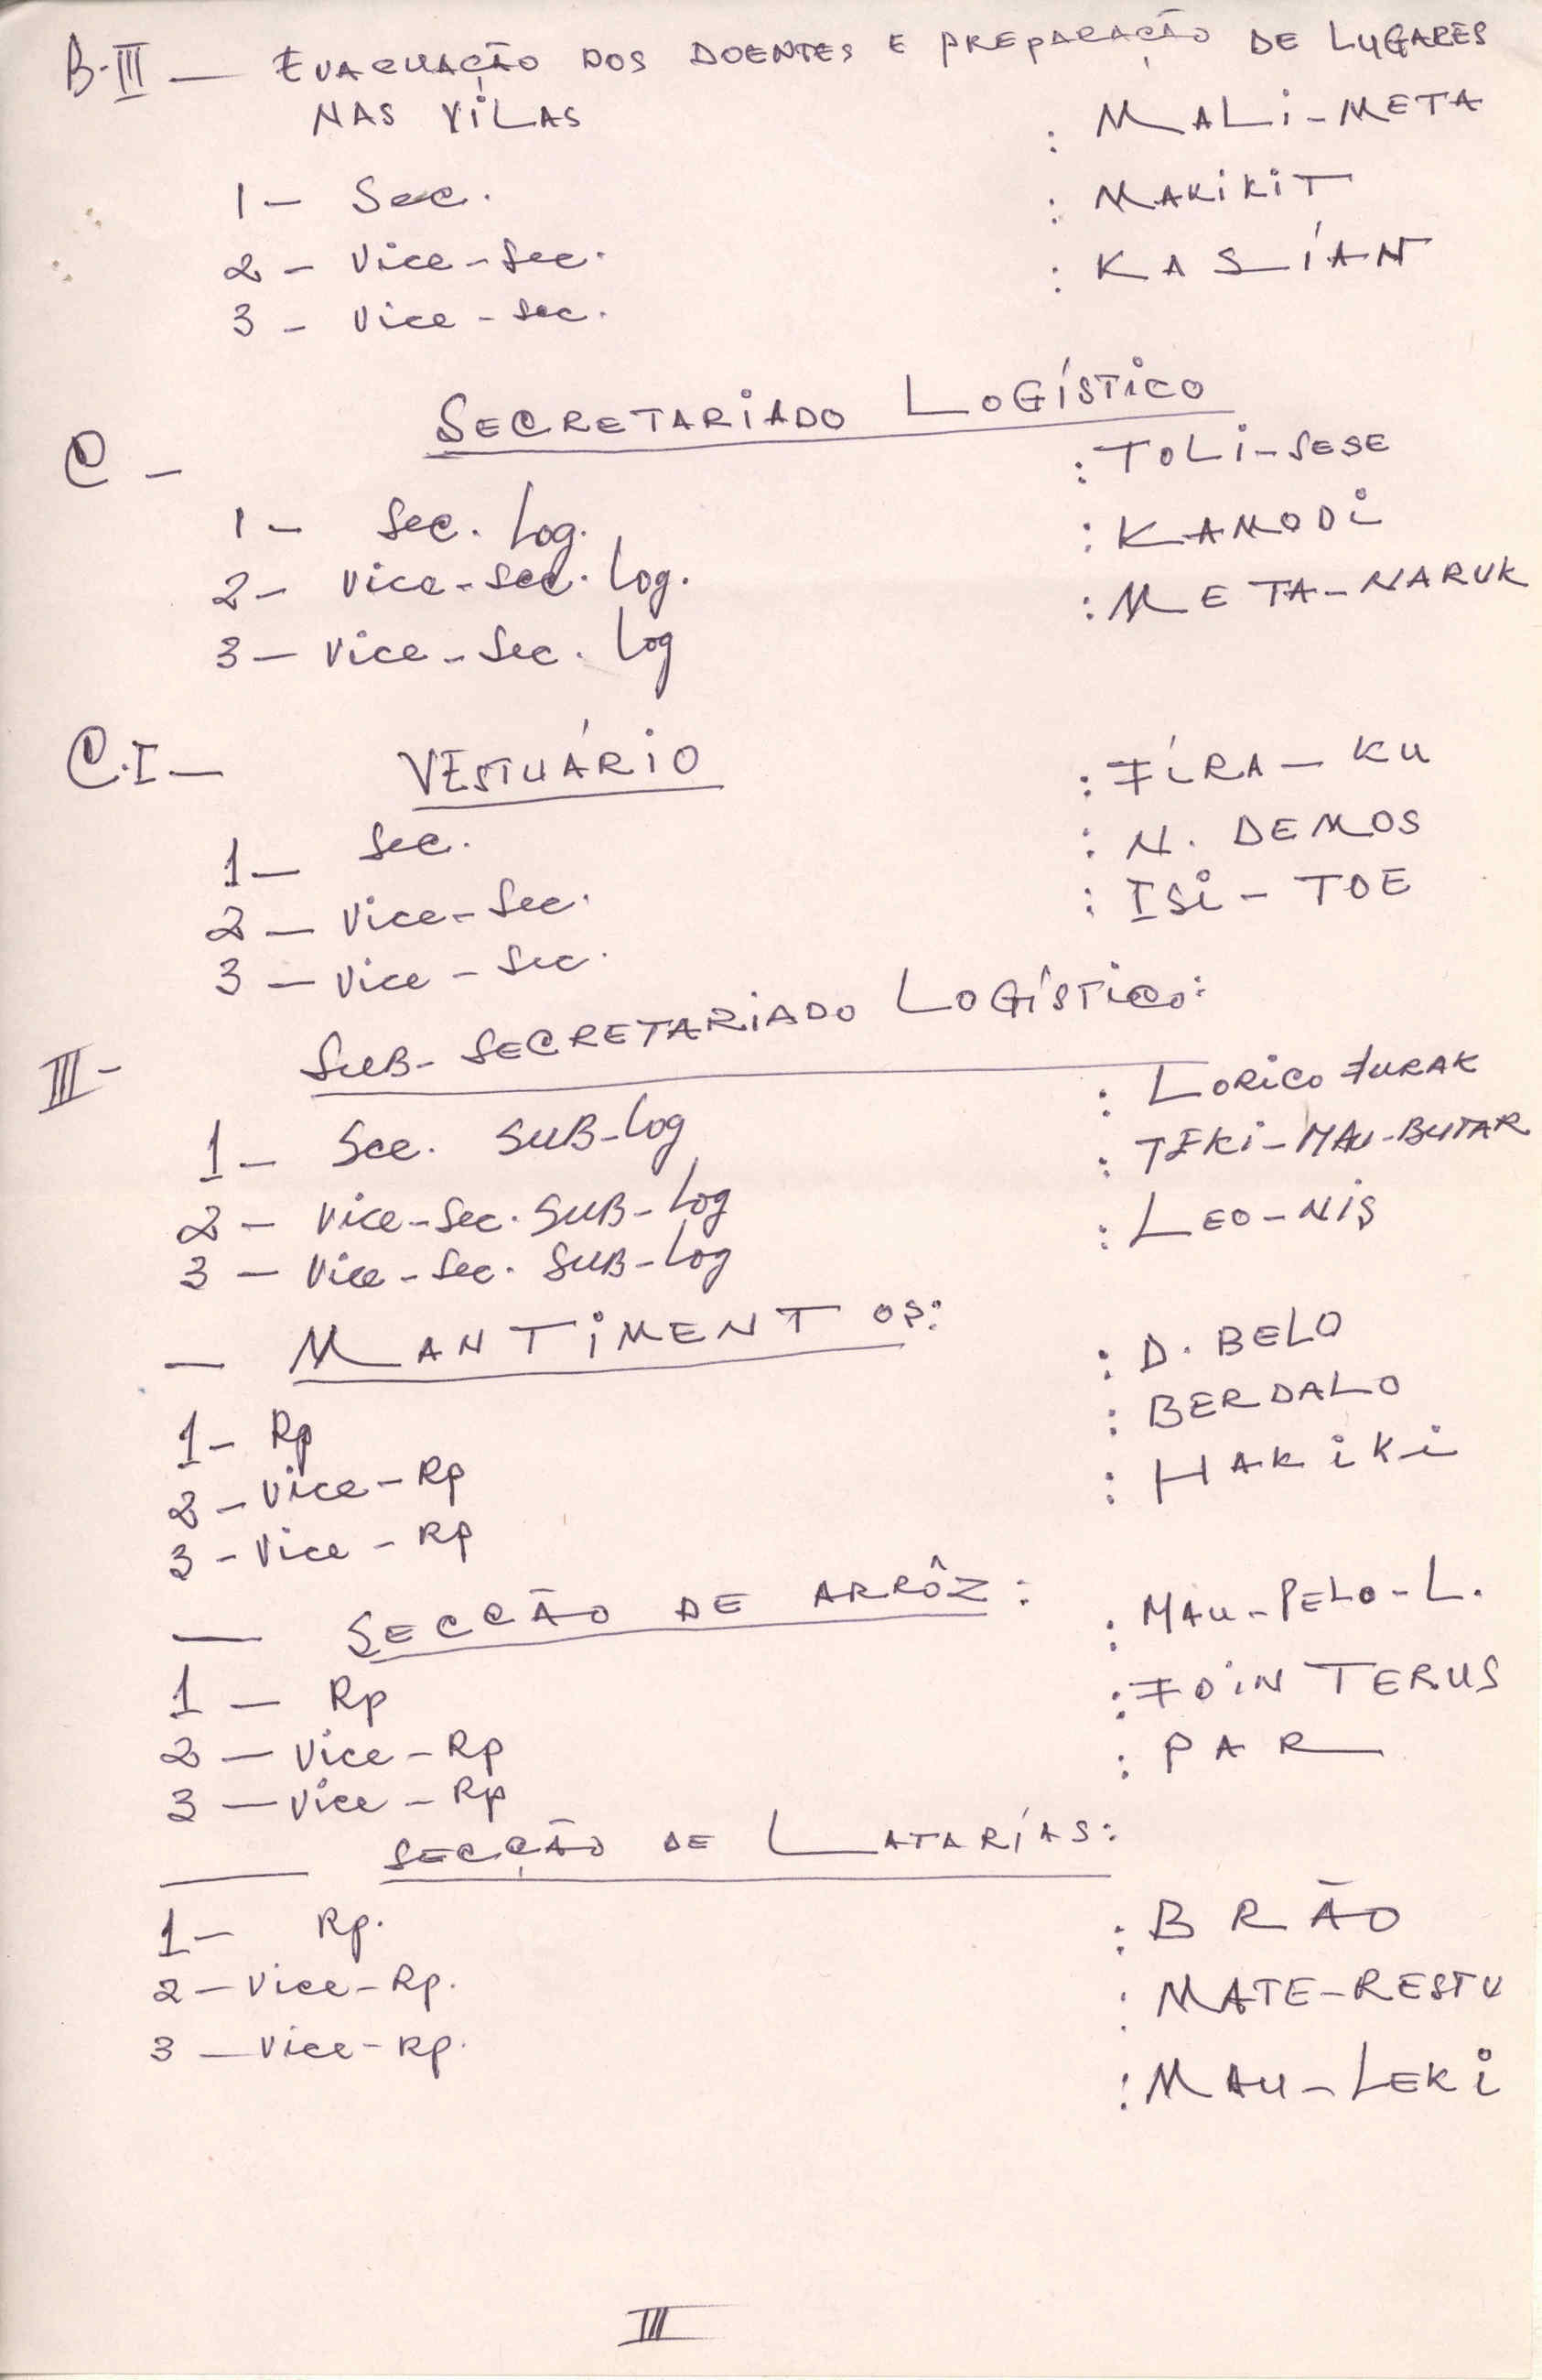 B-III — EVACUAÇÃO DOS DOENTES E PREPARAÇÃO DE LUGARES
NAS VILAS
1 - Sec. : MALI-META
2 - Vice-Sec. : MAKIKIT
3 - Vice-Sec. : KASÍAN
C - SECRETARIADO LOGÍSTICO
1 - Sec. Log. : TOLI-SESE
2 - Vice-Sec. Log. : KAMODI
3 - Vice-Sec. Log : META-NARUK
C.I - VESTUÁRIO
1 - Sec. : FÍRA-KU
2 - Vice-Sec. : N. DEMOS
3 - Vice-Sec. : ISI-TOE
III - SUB-SECRETARIADO LOGÍSTICO:
1 - Sec. SUB-Log : LORICO FURAK
2 - Vice-Sec. SUB-Log : TEKI-MAU-BUTAR
3 - Vice-Sec. SUB-Log : LEO-NIS
— MANTIMENTOS:
1 - Rp : D. BELO
2 - Vice-Rp : BERDALO
3 - Vice-Rp : HAKIKI
— SECÇÃO DE ARRÔZ:
1 - Rp : MAU-PELO-L.
2 - Vice-Rp : FOIN TERUS
3 - Vice-Rp : PAR
— SECÇÃO DE LATARÍAS:
1 - Rp. : BRÃO
2 - Vice-Rp. : MATE-RESTU
3 - Vice-Rp. : MAU-LEKI
III